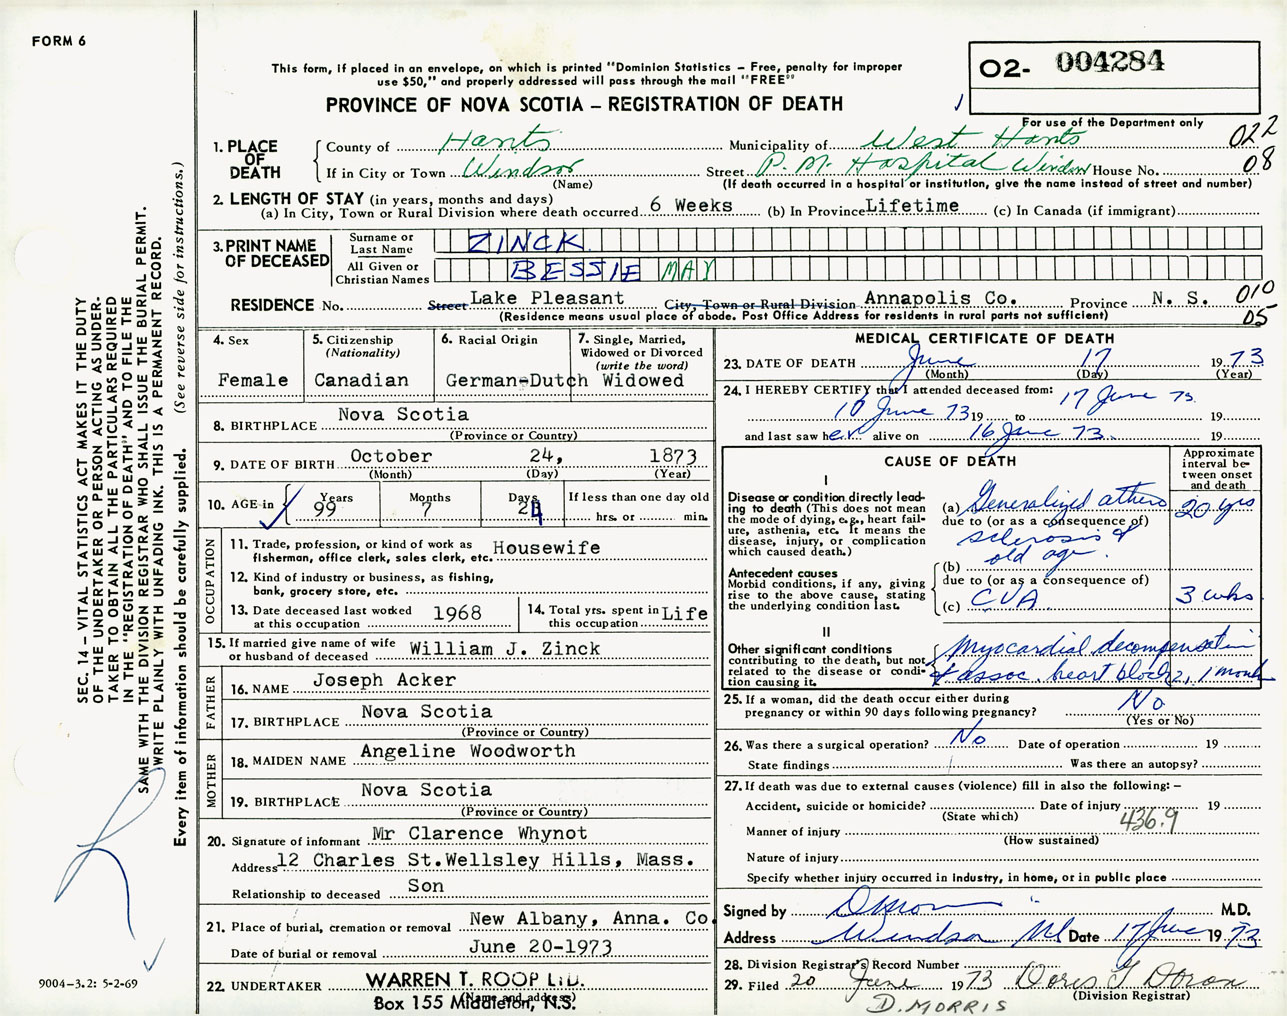 FORM 6
This form, if placed in an envelope, on which is printed "Dominion Statistics – Free, penalty for improper
use $50," and properly addressed will pass through the mail "FREE"
O2- 004284
PROVINCE OF NOVA SCOTIA – REGISTRATION OF DEATH
For use of the Department only
1. PLACE OF DEATH
County of Hants Municipality of West Hants 022
If in City or Town Windsor Street P.M. Hospital Windsor House No. 08
(Name) (If death occurred in a hospital or institution, give the name instead of street and number)
2. LENGTH OF STAY (in years, months and days)
(a) In City, Town or Rural Division where death occurred 6 Weeks (b) In Province Lifetime (c) In Canada (if immigrant)
3. PRINT NAME OF DECEASED
Surname or Last Name ZINCK
All Given or Christian Names BESSIE MAY
RESIDENCE No. Street Lake Pleasant City, Town or Rural Division Annapolis Co. Province N. S. 010
(Residence means usual place of abode. Post Office Address for residents in rural parts not sufficient) 05
4. Sex
Female
5. Citizenship
(Nationality)
Canadian
6. Racial Origin
German-Dutch
7. Single, Married,
Widowed or Divorced
(write the word)
Widowed
8. BIRTHPLACE Nova Scotia
(Province or Country)
9. DATE OF BIRTH October 24, 1873
(Month) (Day) (Year)
10. AGE in
Years 99
Months 7
Days 24
If less than one day old
hrs. or min.
OCCUPATION
11. Trade, profession, or kind of work as
fisherman, office clerk, sales clerk, etc. Housewife
12. Kind of industry or business, as fishing,
bank, grocery store, etc.
13. Date deceased last worked
at this occupation 1968
14. Total yrs. spent in
this occupation Life
15. If married give name of wife
or husband of deceased William J. Zinck
FATHER
16. NAME Joseph Acker
17. BIRTHPLACE Nova Scotia
(Province or Country)
MOTHER
18. MAIDEN NAME Angeline Woodworth
19. BIRTHPLACE Nova Scotia
(Province or Country)
20. Signature of informant Mr Clarence Whynot
Address 12 Charles St.Wellsley Hills, Mass.
Relationship to deceased Son
21. Place of burial, cremation or removal New Albany, Anna. Co.
Date of burial or removal June 20-1973
22. UNDERTAKER WARREN T. ROOP LTD.
(Name and address)
Box 155 Middleton, N.S.
MEDICAL CERTIFICATE OF DEATH
23. DATE OF DEATH June 17 1973
(Month) (Day) (Year)
24. I HEREBY CERTIFY that I attended deceased from:
10 June 73 19 to 17 June 73 19
and last saw her alive on 16 June 73 19
CAUSE OF DEATH
Approximate
interval be-
tween onset
and death
I
Disease or condition directly lead-
ing to death (This does not mean
the mode of dying, e.g., heart fail-
ure, asthenia, etc. It means the
disease, injury, or complication
which caused death.)
(a) Generalized athero 20 yrs
due to (or as a consequence of)
sclerosis &
old age.
Antecedent causes
Morbid conditions, if any, giving
rise to the above cause, stating
the underlying condition last.
(b)
due to (or as a consequence of)
(c) CVA 3 wks
II
Other significant conditions
contributing to the death, but not
related to the disease or condi-
tion causing it.
Myocardial decompensation
& assoc. heart block 1 month
25. If a woman, did the death occur either during
pregnancy or within 90 days following pregnancy? No
(Yes or No)
26. Was there a surgical operation? No Date of operation 19
State findings Was there an autopsy?
27. If death was due to external causes (violence) fill in also the following: –
Accident, suicide or homicide? Date of injury 19
(State which)
436.9
Manner of injury
(How sustained)
Nature of injury
Specify whether injury occurred in industry, in home, or in public place
Signed by M.D.
Address Windsor NS Date 17 June 1973
28. Division Registrar's Record Number
29. Filed 20 June 1973 Doris I Doron
(Division Registrar)
D. MORRIS
SEC. 14 – VITAL STATISTICS ACT MAKES IT THE DUTY
OF THE UNDERTAKER OR PERSON ACTING AS UNDER-
TAKER TO OBTAIN ALL THE PARTICULARS REQUIRED
IN THE "REGISTRATION OF DEATH" AND TO FILE THE
SAME WITH THE DIVISION REGISTRAR WHO SHALL ISSUE THE BURIAL PERMIT.
WRITE PLAINLY WITH UNFADING INK. THIS IS A PERMANENT RECORD.
Every item of information should be carefully supplied. (See reverse side for instructions.)
9004-3.2: 5-2-69